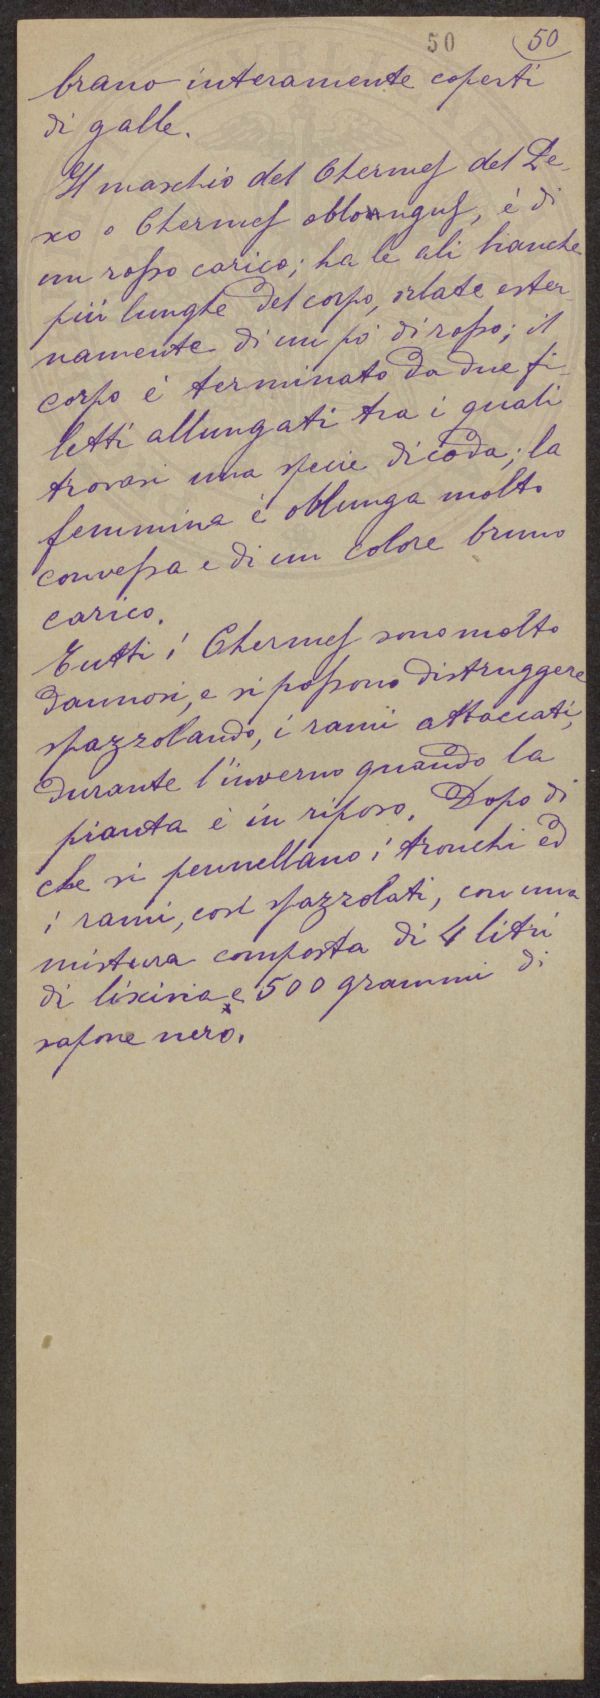 50 50
brano interamente coperti
di galle.
Il maschio del Chermes del Pe-
sco o Chermes oblongus, è di
un rosso carico; ha le ali bianche
più lunghe del corpo, orlate ester-
namente di un pò di rosso; il
corpo è terminato da due fi-
letti allungati tra i quali
trovasi una specie di coda; la
femmina è oblunga molto
convessa e di un colore bruno
carico.
Tutti i Chermes sono molto
dannosi, e si possono distruggere
spazzolando, i rami attaccati,
durante l'inverno quando la
pianta è in riposo. Dopo di
che si pennellano i tronchi ed
i rami, così spazzolati, con una
mistura composta di 4 litri
di lixivia e 500 grammi di
sapone nero.